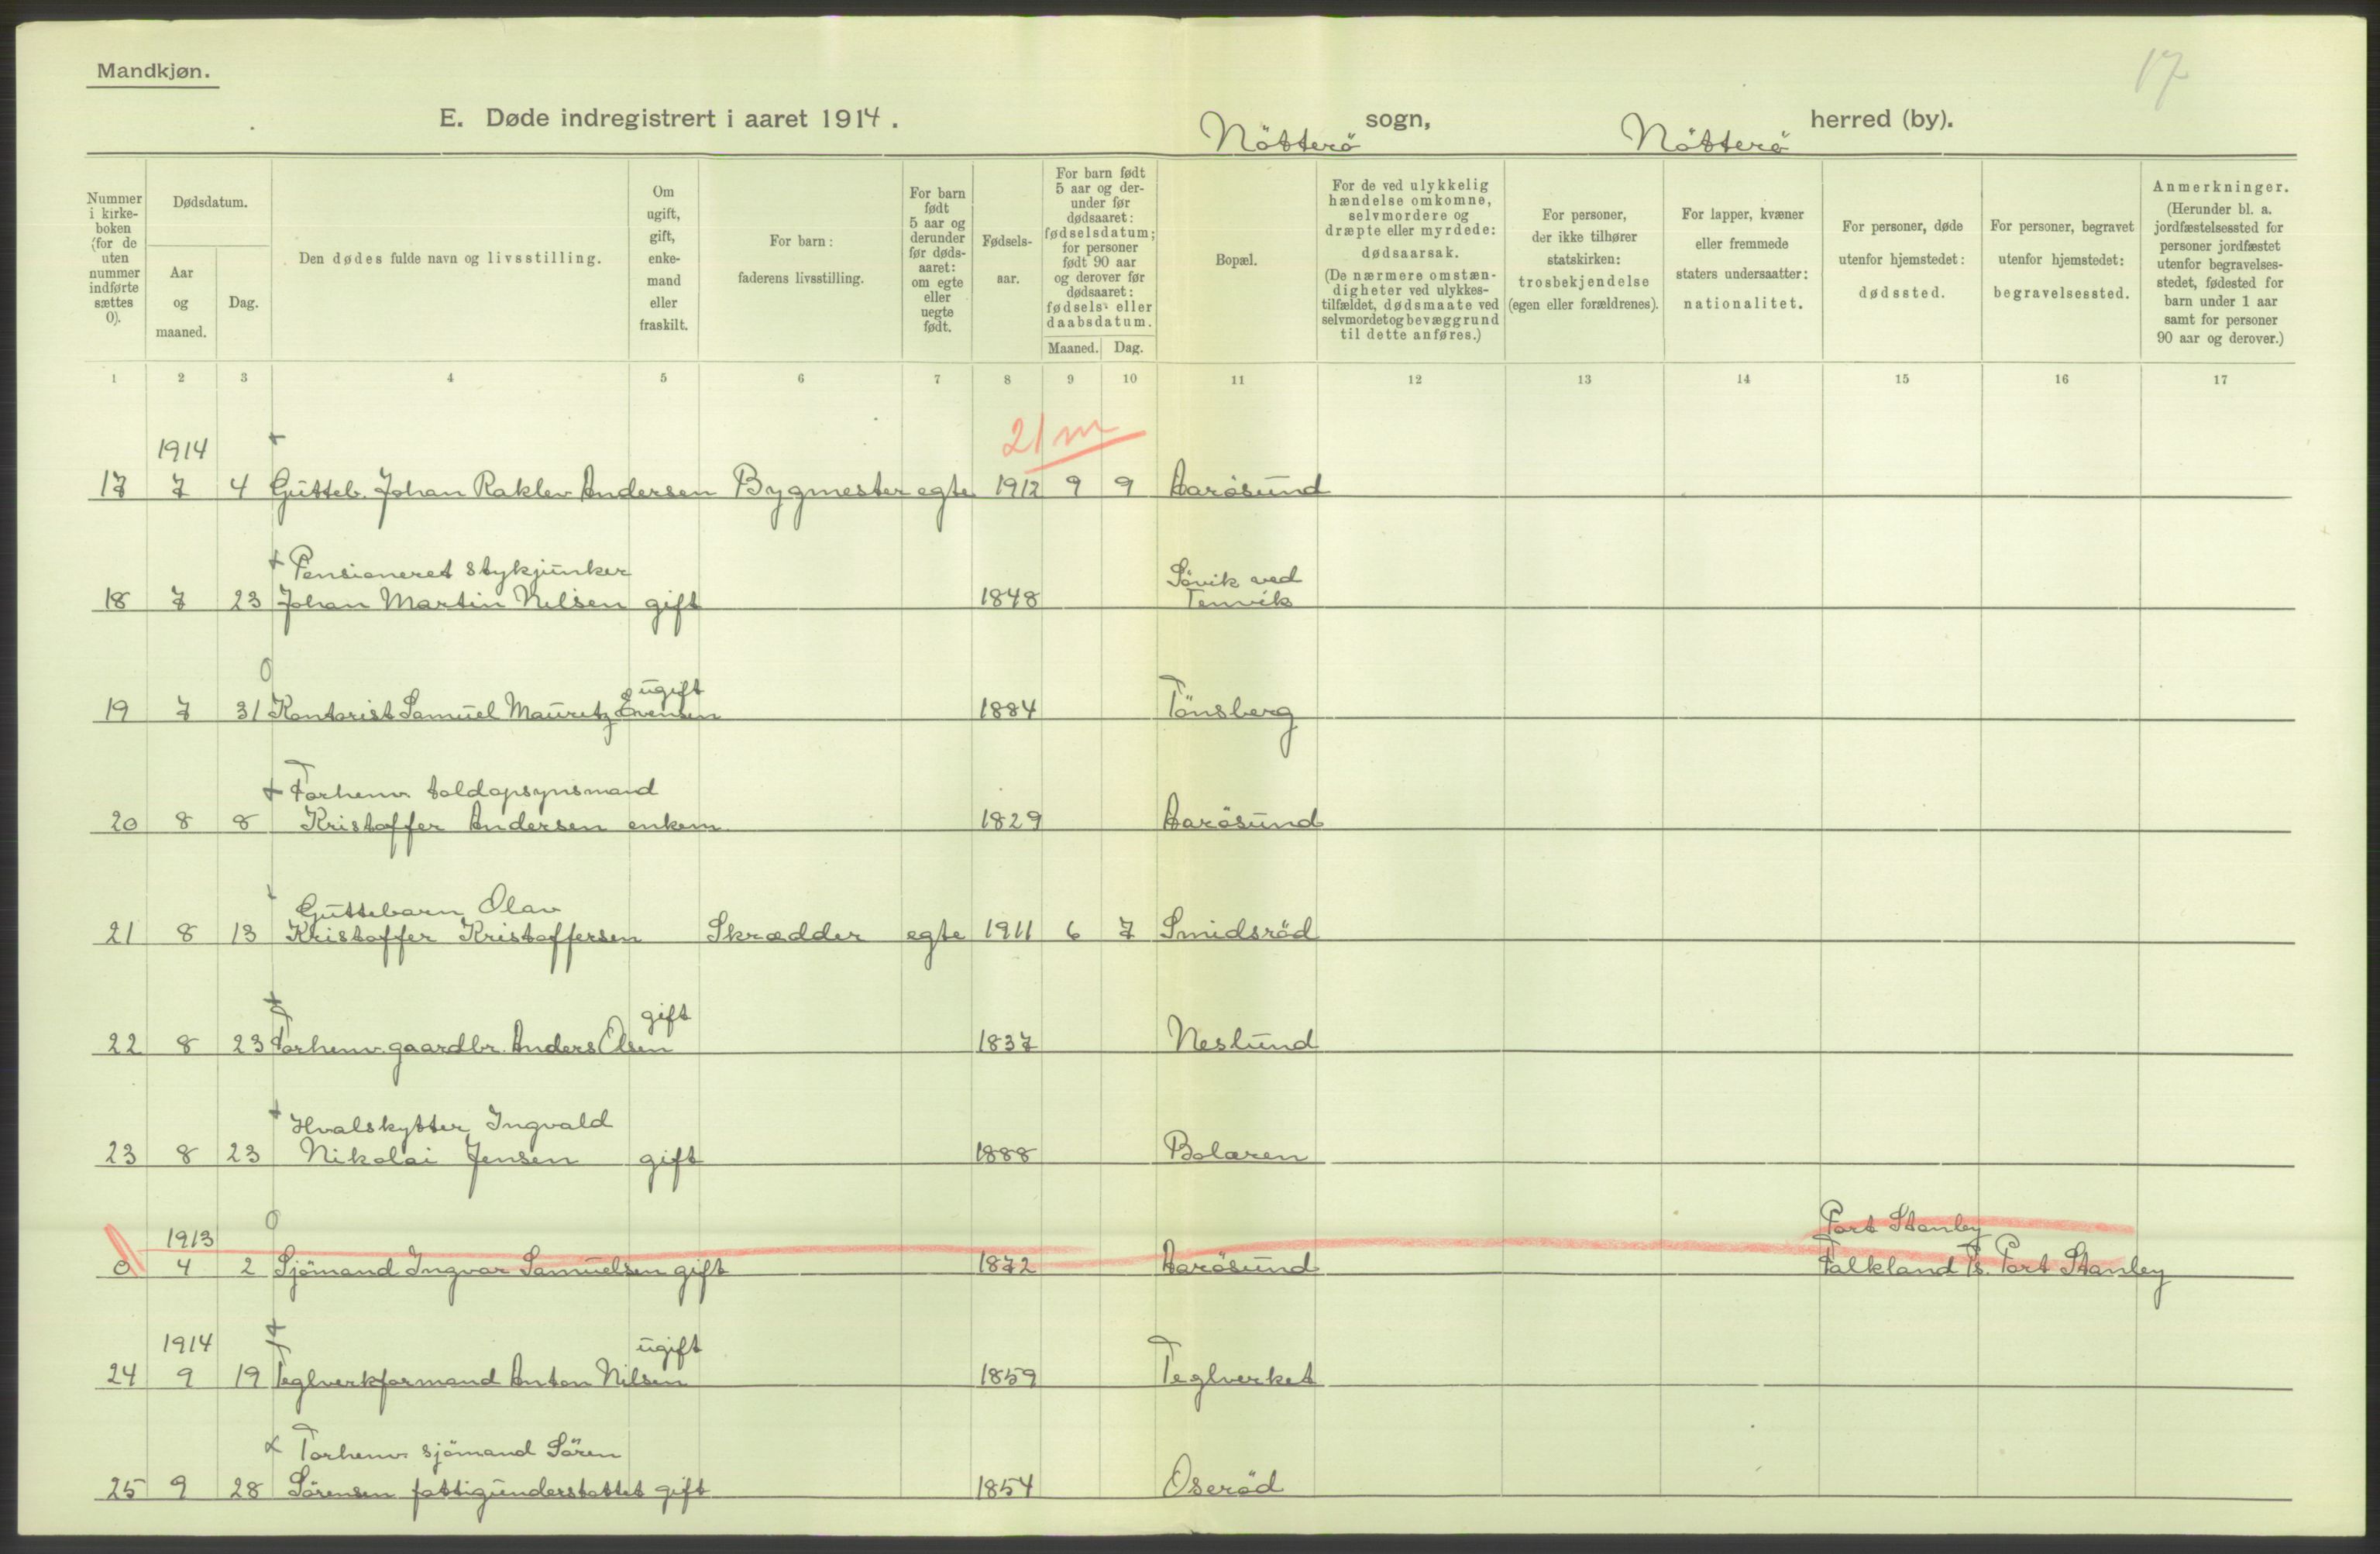 17
Mandkjøn.
E. Døde indregistrert i aaret 1914. Nötterö sogn, Nötterö herred (by).
Nummer i kirke-boken (for de uten nummer indførte sættes 0).
Dødsdatum.
Aar og maaned.
Dag.
Den dødes fulde navn og livsstilling.
Om ugift, gift, enke-mand eller fraskilt.
For barn: faderens livsstilling.
For barn født 5 aar og derunder før døds-aaret: om egte eller uegte født.
Fødsels-aar.
For barn født 5 aar og der-under før dødsaaret: fødselsdatum; for personer født 90 aar og derover før dødsaaret: fødsels- eller daabsdatum.
Maaned. Dag.
Bopæl.
For de ved ulykkelig hændelse omkomne, selvmordere og dræpte eller myrdede: dødsaarsak. (De nærmere omstæn-digheter ved ulykkes-tilfældet, dødsmaate ved selvmordet og bevæggrund til dette anføres.)
For personer, der ikke tilhører statskirken: trosbekjendelse (egen eller forældrenes).
For lapper, kvæner eller fremmede staters undersaatter: nationalitet.
For personer, døde utenfor hjemstedet: dødssted.
For personer, begravet utenfor hjemstedet: begravelsessted.
Anmerkninger. (Herunder bl. a. jordfæstelsessted for personer jordfæstet utenfor begravelses-stedet, fødested for barn under 1 aar samt for personer 90 aar og derover.)
1 2 3 4 5 6 7 8 9 10 11 12 13 14 15 16 17
1914 + 21 m
17 7 4 Gutteb. Johan Raklev Andersen Bygmester egte 1912 9 9 Aarösund
+ Pensioneret stykjunker Sövik ved
18 7 23 Johan Martin Nilsen gift 1848 Tenvik
0 ugift
19 7 31 Kontorist Samuel Mauritz Evensen 1884 Tönsberg
+ Forhenv. toldopsynsmand
20 8 8 Kristoffer Andersen enkem. 1829 Aarösund
+ Guttebarn Olav
21 8 13 Kristoffer Kristoffersen Skrædder egte 1911 6 7 Smidsröd
+ gift
22 8 23 Forhenv. gaardbr. Anders Olsen 1837 Neslund
+ Hvalskytter Ingvald
23 8 23 Nikolai Jensen gift 1888 Bolæren
1913 0 Port Stanley
0 4 2 Sjömand Ingvar Samuelsen gift 1872 Aarösund Falkland Is. Port Stanley
1914 + ugift
24 9 19 Teglverkformand Anton Nilsen 1859 Teglverket
+ Forhenv. sjömand Sören
25 9 28 Sörensen fattigunderstøttet gift 1854 Oseröd